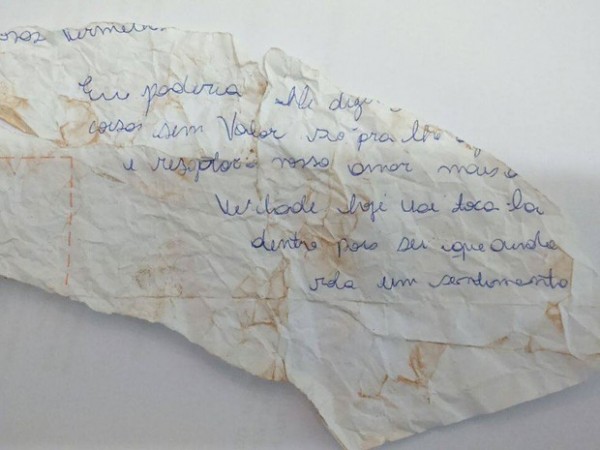 osas vermelh
Eu poderia lhe dize
coisas sem Valor só pra lhe
e resplora nosso amor mais
Verdade hoje vai toca la
dentro pois sei que ainda
rola um sentimento